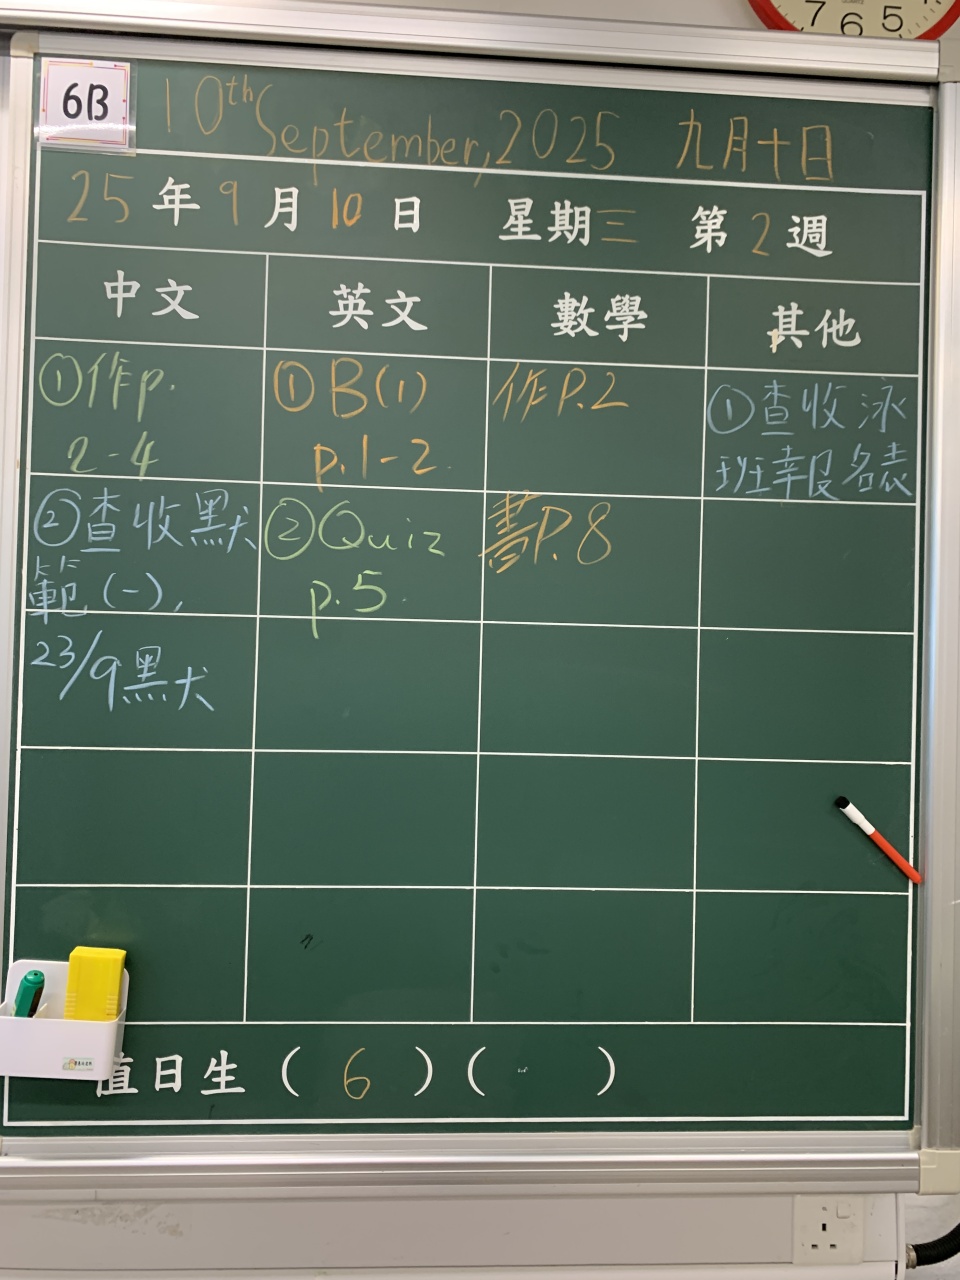 7 6 5
6B
10th September, 2025 九月十日
25年9月10日 星期三 第2週
中文 英文 數學 其他
①作p.
2-4
①B(1)
p.1-2.
作P.2
①查收泳
班報名表
②查收默
範(一),
②Quiz
p.5.
書P.8
23/9默
值日生(6)( )